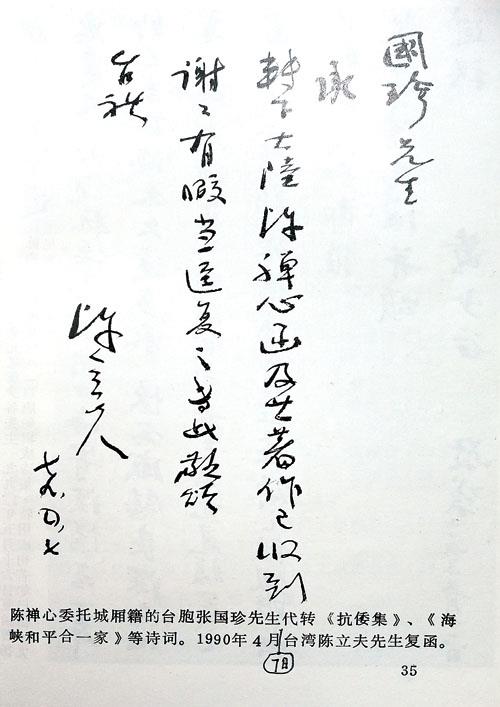 國珍先生
承
轉下大陸陈禅心函及其著作已收到
谢〻有暇当迳复之专此敬颂
台祺
陈立夫
七九、四、七
陈禅心委托城厢籍的台胞张国珍先生代转《抗倭集》、《海
峡和平合一家》等诗词。1990年4月台湾陈立夫先生复函。
7日
35